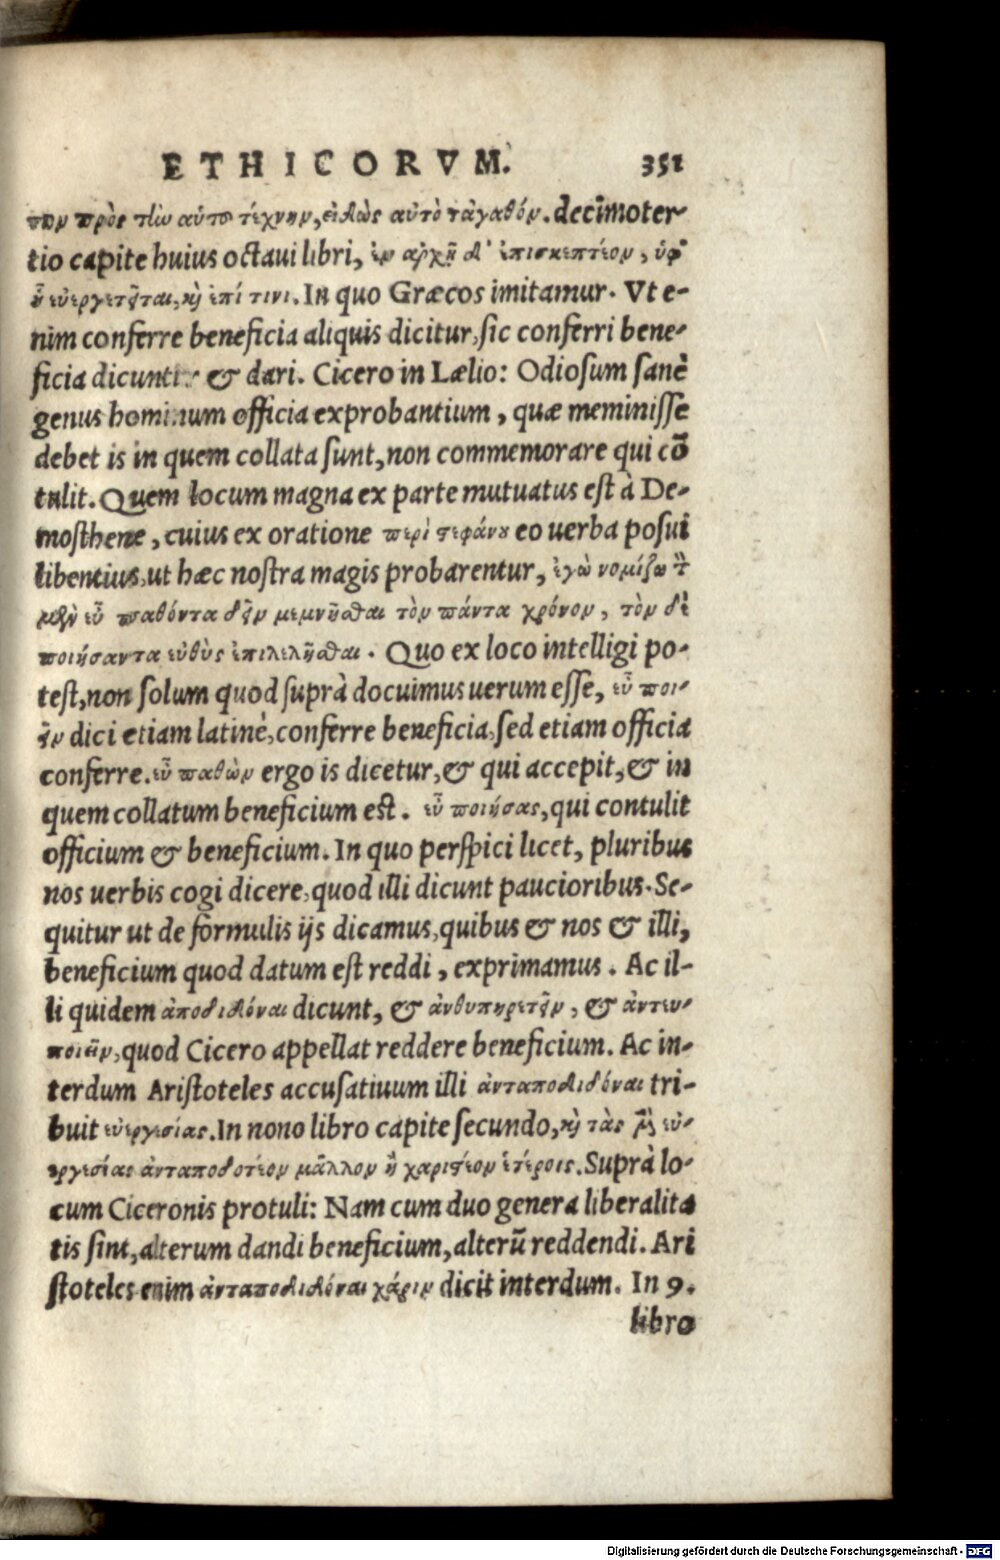 ETHICORVM. 351
πρὸς τὴν αὐτοῦ τέχνην, εἰδὼς αὐτὸ τἀγαθόν. decimoter-
tio capite huius octaui libri, ἐν ἀρχῇ δ' ἐπισκεπτέον, ὑφ'
οὗ εὐεργετεῖται, κỳ ἐπί τινι. In quo Græcos imitamur. Vt e-
nim conferre beneficia aliquis dicitur, sic conferri bene-
ficia dicuntur & dari. Cicero in Lælio: Odiosum sanè
genus hominum officia exprobantium, quæ meminisse
debet is in quem collata sunt, non commemorare qui cō
tulit. Quem locum magna ex parte mutuatus est à De-
mosthene, cuius ex oratione περὶ στεφάνου eo uerba posui
libentius, ut hæc nostra magis probarentur, ἐγὼ νομίζω τὸν
μὲν εὖ παθόντα δεῖν μεμνῆσθαι τὸν πάντα χρόνον, τὸν δὲ
ποιήσαντα εὐθὺς ἐπιλελῆσθαι. Quo ex loco intelligi po-
test, non solum quod suprà docuimus uerum esse, εὖ ποι-
εῖν dici etiam latinè, conferre beneficia, sed etiam officia
conferre. εὖ παθὼν ergo is dicetur, & qui accepit, & in
quem collatum beneficium est. εὖ ποιήσας, qui contulit
officium & beneficium. In quo perspici licet, pluribus
nos uerbis cogi dicere, quod illi dicunt paucioribus. Se-
quitur ut de formulis ijs dicamus, quibus & nos & illi,
beneficium quod datum est reddi, exprimamus. Ac il-
li quidem ἀποδιδόναι dicunt, & ἀνθυπηρετεῖν, & ἀντευ-
ποιεῖν, quod Cicero appellat reddere beneficium. Ac in-
terdum Aristoteles accusatiuum illi ἀνταποδιδόναι tri-
buit εὐεργεσίας. In nono libro capite secundo, κỳ τὰς μὲν εὐ-
εργεσίας ἀνταποδοτέον μᾶλλον ἢ χαριστέον ἑτέροις. Suprà lo-
cum Ciceronis protuli: Nam cum duo genera liberalita
tis sint, alterum dandi beneficium, alterū reddendi. Ari
stoteles enim ἀνταποδιδόναι χάριν dicit interdum. In 9.
libro
Digitalisierung gefördert durch die Deutsche Forschungsgemeinschaft - DFG